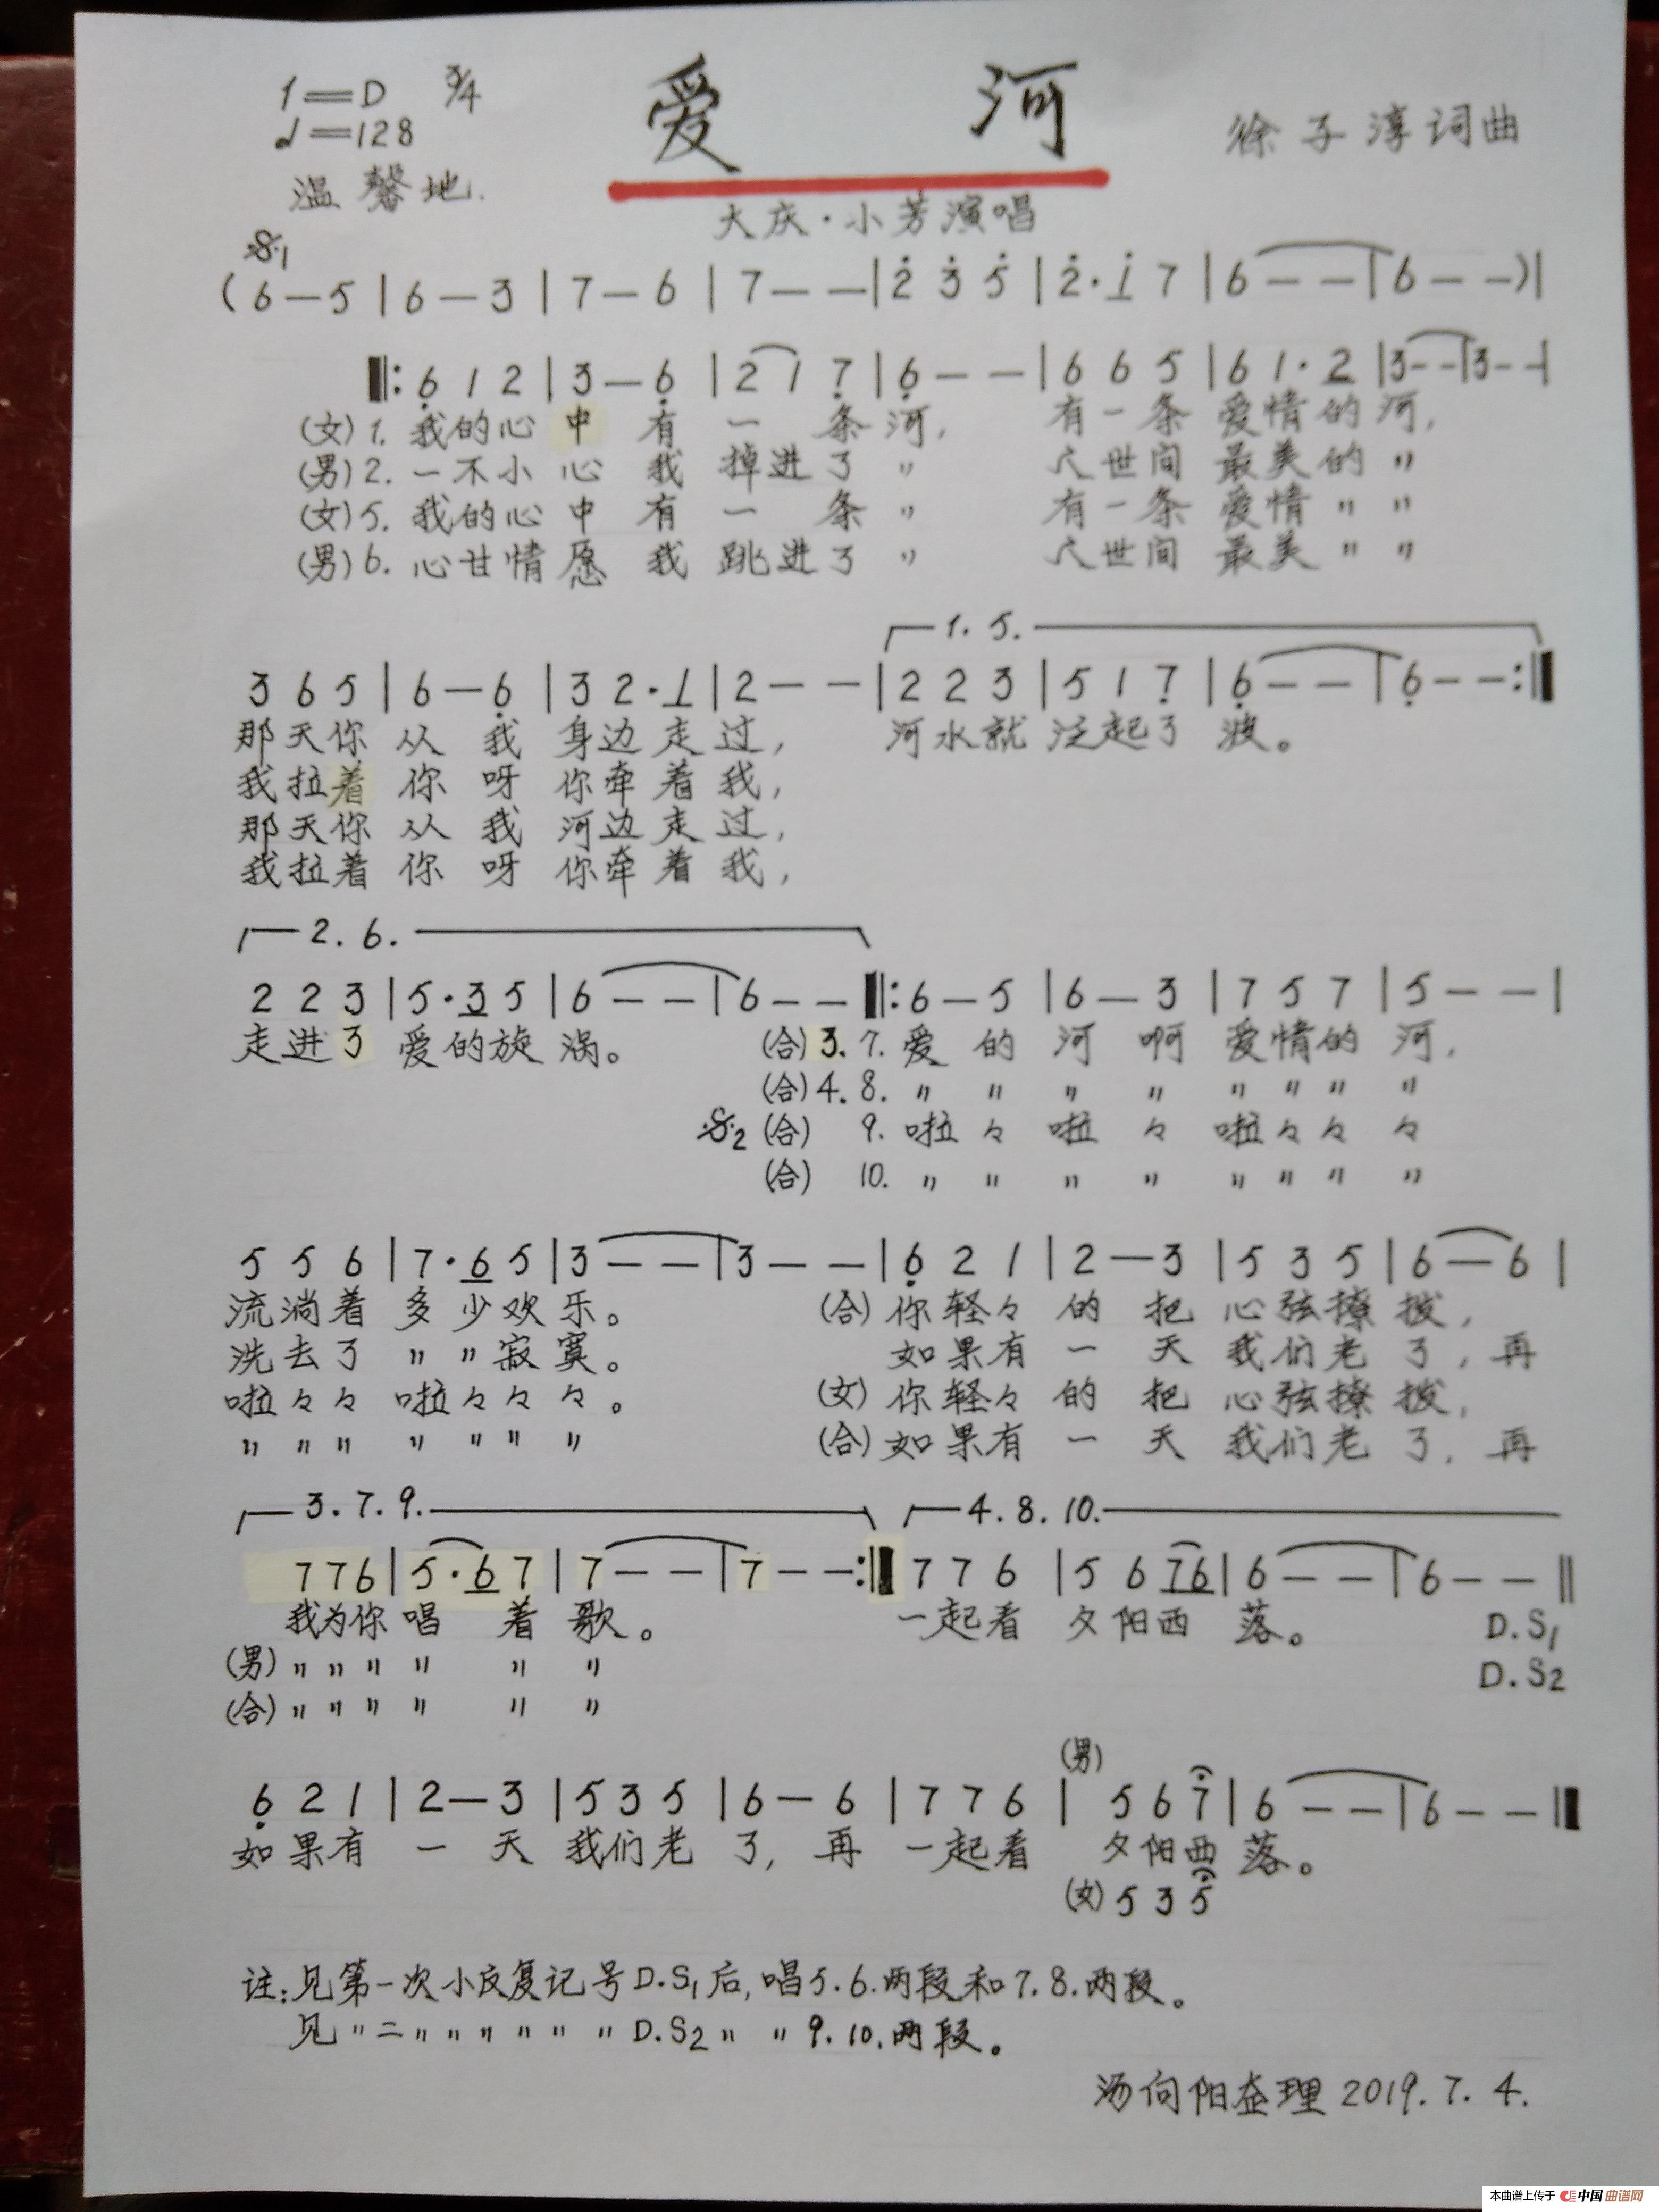 1=D 3/4
♩=128
爱 河
徐子淳词曲
温馨地.
大庆·小芳演唱
𝄋1
(6—5|6—3|7—6|7——|2̇ 3̇ 5̇|2̇·1̇ 7|6——|6——)|
‖:6̣ 1 2|3—6̣|2 1 7̣|6̣——|6 6 5|6 1·2|3——|3——|
(女)1. 我的心中有一条河, 有一条爱情的河,
(男)2. 一不小心我掉进了〃 人世间最美的〃
(女)5. 我的心中有一条〃 有一条爱情〃〃
(男)6. 心甘情愿我跳进了〃 人世间最美〃〃
1. 5.
3 6 5|6—6̣|3 2·1|2——|2 2 3|5 1 7̣|6̣——|6̣——:‖
那天你从我身边走过, 河水就泛起了波。
我拉着你呀你牵着我,
那天你从我河边走过,
我拉着你呀你牵着我,
2. 6.
2 2 3|5·3 5|6——|6——‖:6—5|6—3|7 5 7|5——|
走进了爱的旋涡。 (合)3. 7. 爱的河啊爱情的河,
(合)4. 8. 〃〃〃〃〃〃〃〃
𝄋2 (合) 9. 啦々啦々啦々々々
(合) 10. 〃〃〃〃〃〃〃〃
5 5 6|7·6 5|3——|3——|6̣ 2 1|2—3|5 3 5|6—6|
流淌着多少欢乐。 (合)你轻々的把心弦撩拨,
洗去了〃〃寂寞。 如果有一天我们老了,再
啦々々啦々々々。 (女)你轻々的把心弦撩拨,
〃〃〃〃〃〃〃 (合)如果有一天我们老了,再
3. 7. 9. 4. 8. 10.
7 7 6|5·6 7|7——|7——:‖7 7 6|5 6 7 6|6——|6——‖
我为你唱着歌。 一起看夕阳西落。 D.S1
(男)〃〃〃〃〃〃 D.S2
(合)〃〃〃〃〃〃
(男)
6̣ 2 1|2—3|5 3 5|6—6|7 7 6|5 6 7|6——|6——‖
如果有一天我们老了,再一起看夕阳西落。
(女)5 3 5
注:见第一次小反复记号D.S1后,唱5.6.两段和7.8.两段。
见〃二〃〃〃〃〃〃D.S2〃〃9.10.两段。
汤向阳整理2019.7.4.
本曲谱上传于 中国曲谱网